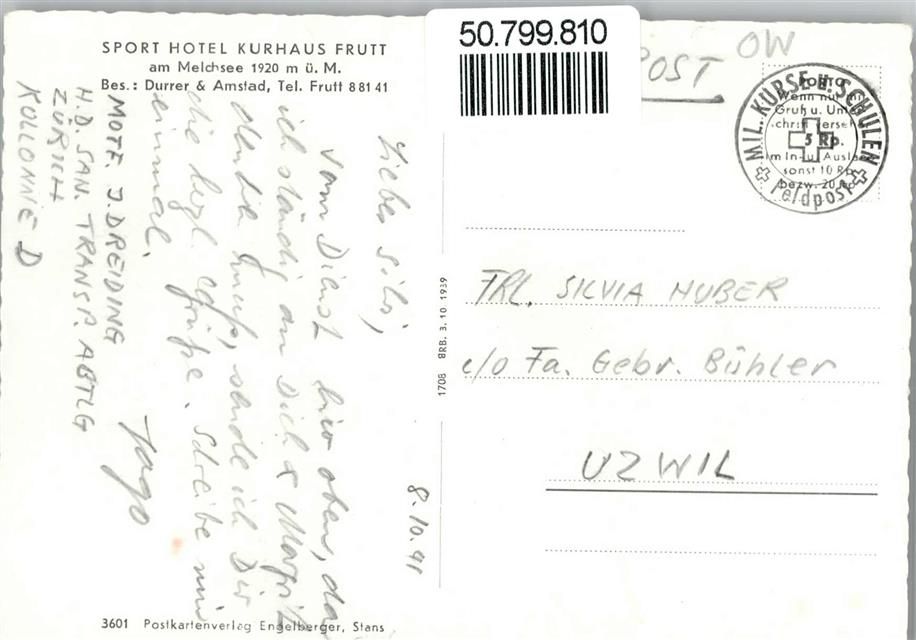 SPORT HOTEL KURHAUS FRUTT
am Melchsee 1920 m ü. M.
Bes.: Durrer & Amstad, Tel. Frutt 88141
50.799.810
POST
OW
MIL. KURSE u. SCHULEN
Feldpost
Wenn nur mit
Gruß u. Unter-
schrift versehen
5 Rp.
Im In- u. Ausland
sonst 10 Rp.
bezw. 20 Rp.
8.10.41
Liebes Silvi,
Vom Dienst hier oben, da
ich ständig an Dich &
denken muss, sende ich Dir
die herzl. Grüsse. Schreibe mir
einmal.
Jago
MOTF. J. DREIDING
H.D. SAN. TRANSP. ABTLG
ZÜRICH
KOLONNE D
1708 BRB. 3. 10 1939
FRL. SILVIA HUBER
c/o Fa. Gebr. Bühler
UZWIL
3601 Postkartenverlag Engelberger, Stans